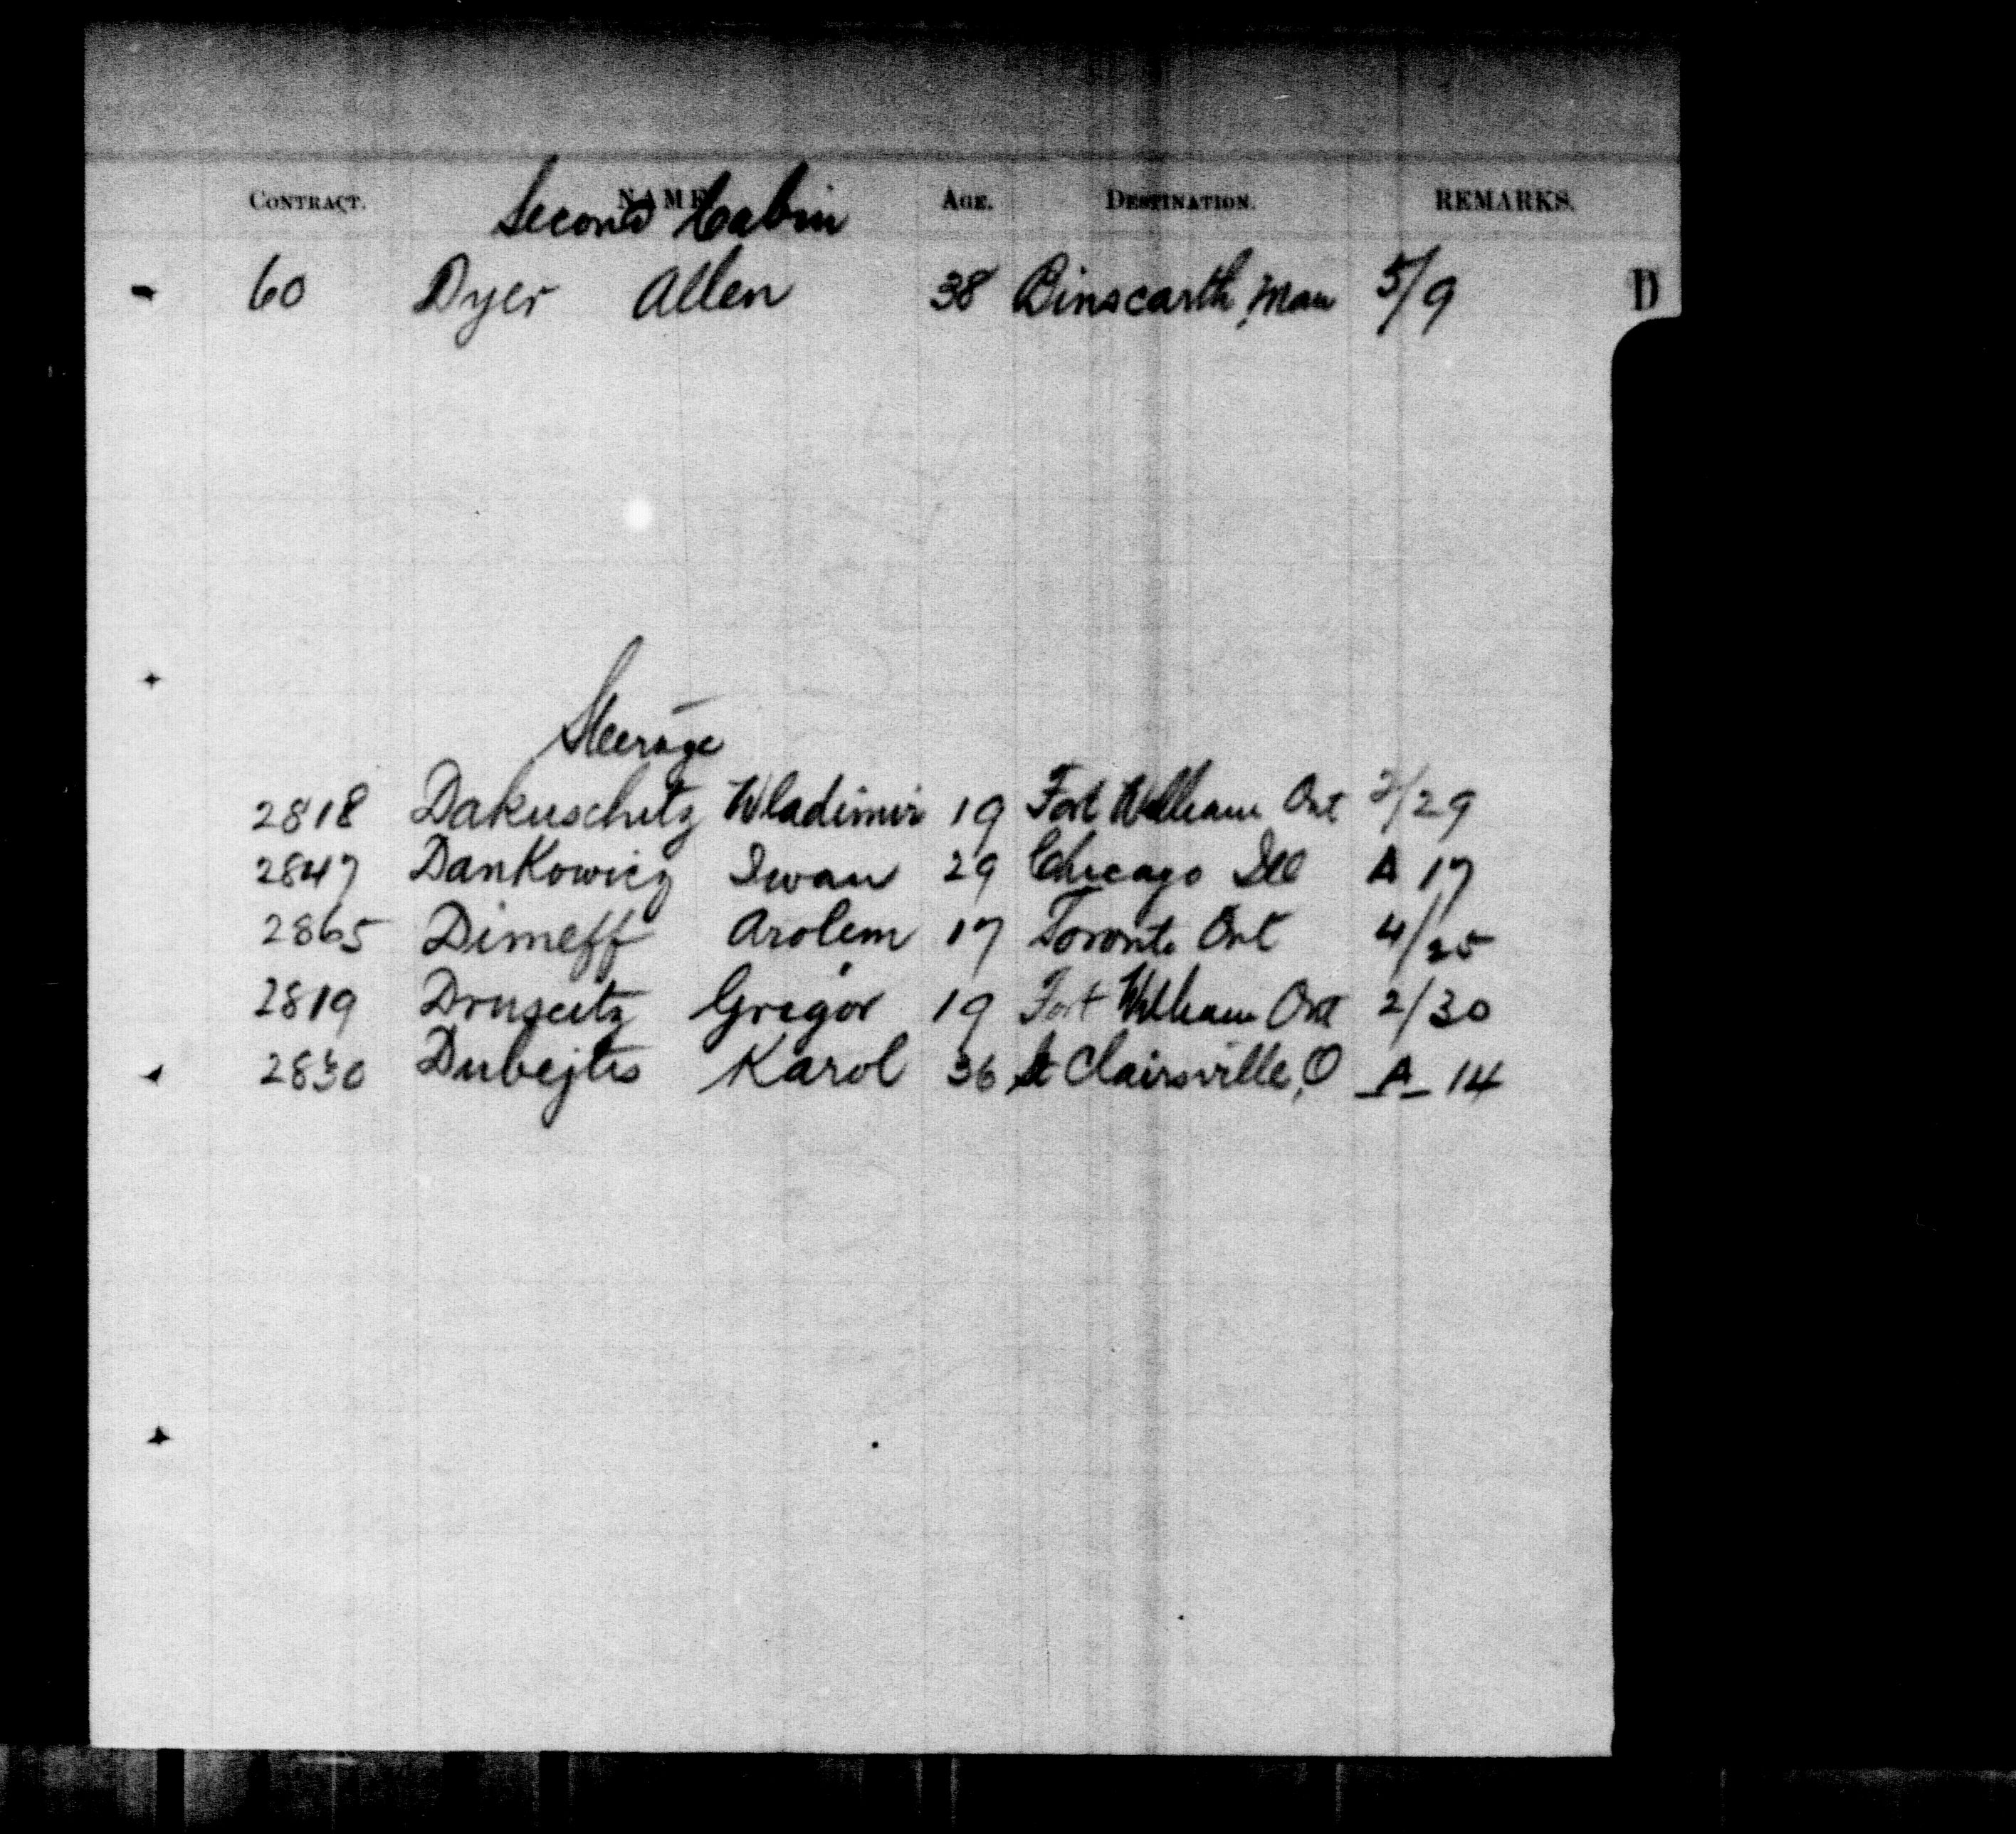 CONTRACT. NAME AGE. DESTINATION. REMARKS.
Second Cabin
60 Dyer Allen 38 Binscarth, Man 5/9
D
Steerage
2818 Dakuschitz Wladimir 19 Fort William Ont 2/29
2847 Dankowicz Iwan 29 Chicago Ill A 17
2865 Dimeff Arolem 17 Toronto Ont 4/25
2819 Gregor 19 Fort William Ont 2/30
2830 Dubejtis Karol 36 St Clairsville, O A 14